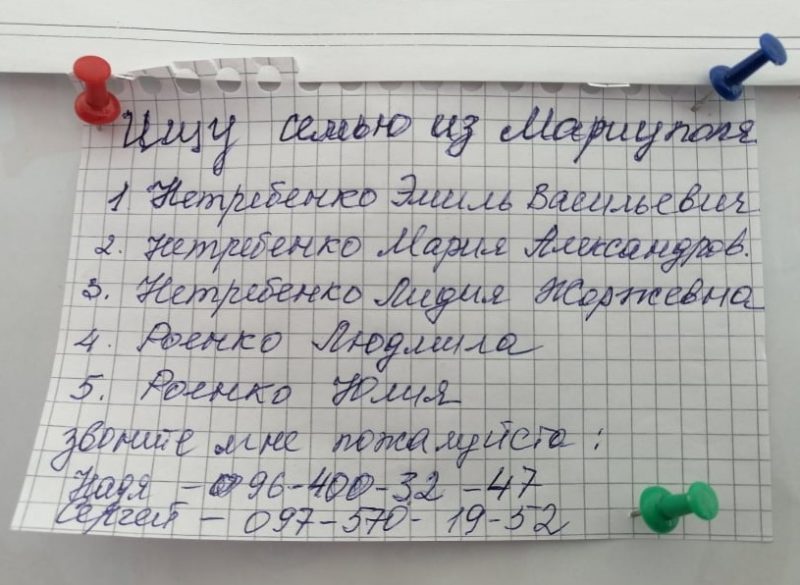 Ищу семью из Мариуполя
1 Нетребенко Эмиль Васильевич
2. Нетребенко Мария Александров.
3. Нетребенко Лидия Жоржевна
4. Роенко Людмила
5. Роенко Юлия
звоните мне пожалуйста:
Надя - 096-400-32-47
Сергей - 097-570-19-52